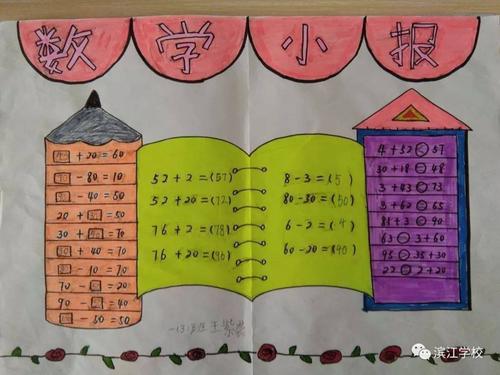 数学小报
+ 20 = 60
- 80 = 10
- 40 = 50
20 + = 50
30 + = 70
+ 40 = 70
- 10 = 70
70 - = 20
90 - = 40
- 50 = 50
52 + 2 = (57)
52 + 20 = (72)
76 + 2 = (78)
76 + 20 = (96)
8 - 3 = (5)
80 - 30 = (50)
6 - 2 = (4)
60 - 20 = (40)
4 + 52 < 57
30 + 18 = 48
3 + 43 73
3 + 62 65
84 + 3 90
63 3 + 60
95 35 + 30
22 2 + 20
一(3)班 王紫
滨江学校